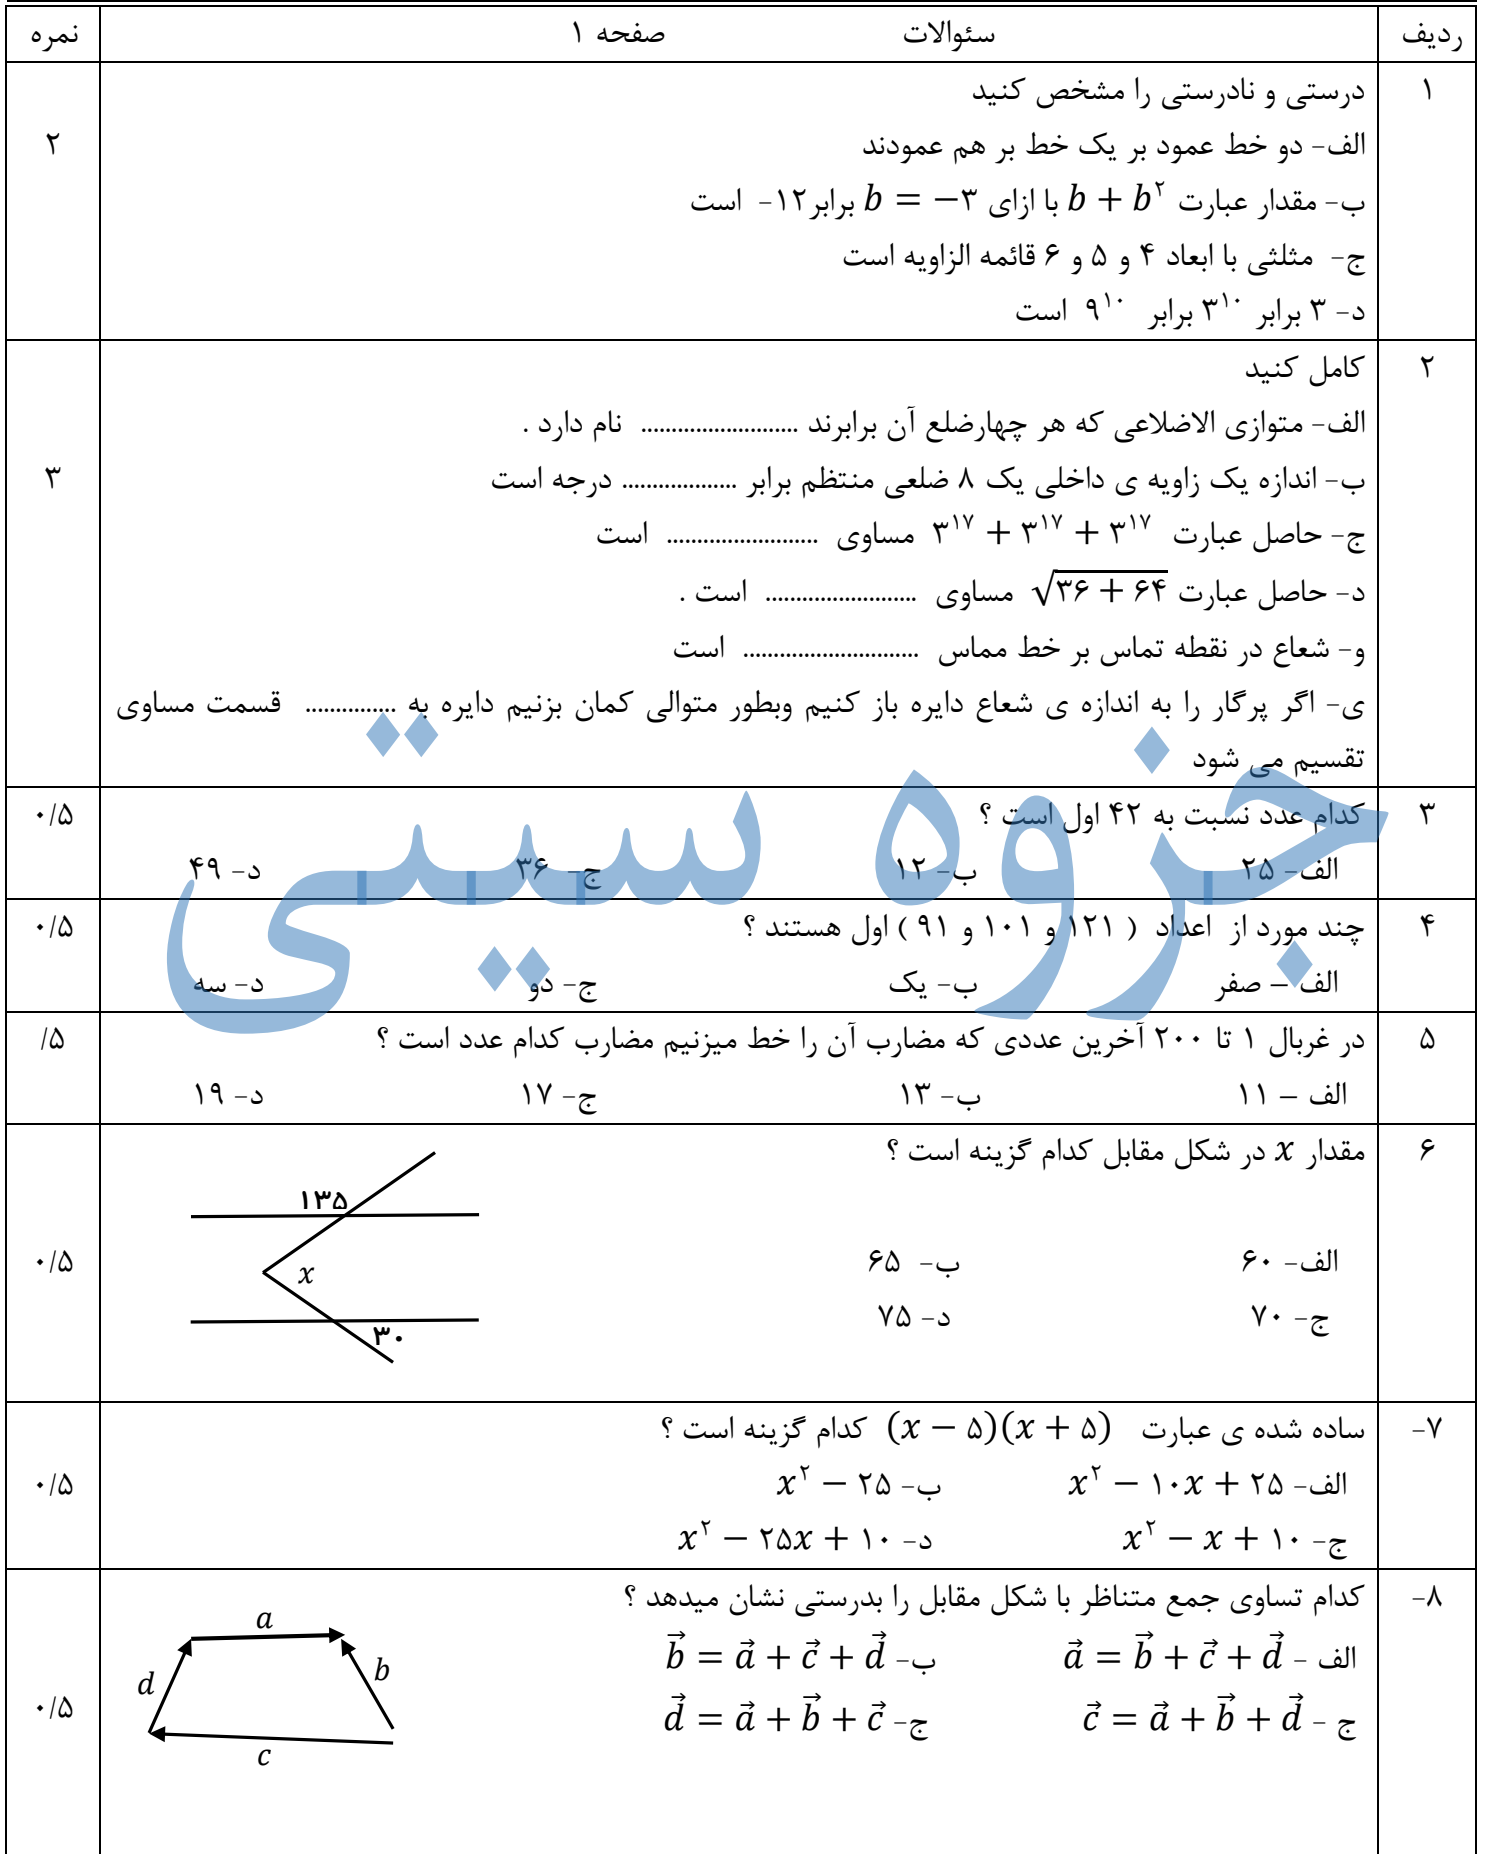 ردیف سئوالات صفحه ۱ نمره
۱ درستی و نادرستی را مشخص کنید
الف- دو خط عمود بر یک خط بر هم عمودند
۲
ب- مقدار عبارت b + b^۲ با ازای b = −۳ برابر ۱۲- است
ج- مثلثی با ابعاد ۴ و ۵ و ۶ قائمه الزاویه است
د- ۳ برابر ۳^۱۰ برابر ۹^۱۰ است
۲ کامل کنید
الف- متوازی الاضلاعی که هر چهارضلع آن برابرند .......................... نام دارد .
ب- اندازه یک زاویه ی داخلی یک ۸ ضلعی منتظم برابر ................... درجه است
۳
ج- حاصل عبارت ۳^۱۷ + ۳^۱۷ + ۳^۱۷ مساوی ......................... است
د- حاصل عبارت √(۳۶ + ۶۴) مساوی ......................... است .
و- شعاع در نقطه تماس بر خط مماس ............................. است
ی- اگر پرگار را به اندازه ی شعاع دایره باز کنیم وبطور متوالی کمان بزنیم دایره به ............... قسمت مساوی
تقسیم می شود
جزوه سیتی
۳ کدام عدد نسبت به ۴۲ اول است ؟ ۰/۵
الف- ۲۵ ب- ۱۲ ج- ۳۶ د- ۴۹
۴ چند مورد از اعداد ( ۱۲۱ و ۱۰۱ و ۹۱ ) اول هستند ؟ ۰/۵
الف – صفر ب- یک ج- دو د- سه
۵ در غربال ۱ تا ۲۰۰ آخرین عددی که مضارب آن را خط میزنیم مضارب کدام عدد است ؟ /۵
الف – ۱۱ ب- ۱۳ ج- ۱۷ د- ۱۹
۶ مقدار x در شکل مقابل کدام گزینه است ؟
۱۳۵
الف- ۶۰ ب- ۶۵ ۰/۵
x
ج- ۷۰ د- ۷۵
۳۰
۷- ساده شده ی عبارت (x − ۵)(x + ۵) کدام گزینه است ؟
الف- x^۲ − ۱۰x + ۲۵ ب- x^۲ − ۲۵ ۰/۵
ج- x^۲ − x + ۱۰ د- x^۲ − ۲۵x + ۱۰
۸- کدام تساوی جمع متناظر با شکل مقابل را بدرستی نشان میدهد ؟
a
الف - a⃗ = b⃗ + c⃗ + d⃗ ب- b⃗ = a⃗ + c⃗ + d⃗
b
d
ج - c⃗ = a⃗ + b⃗ + d⃗ ج- d⃗ = a⃗ + b⃗ + c⃗ ۰/۵
c